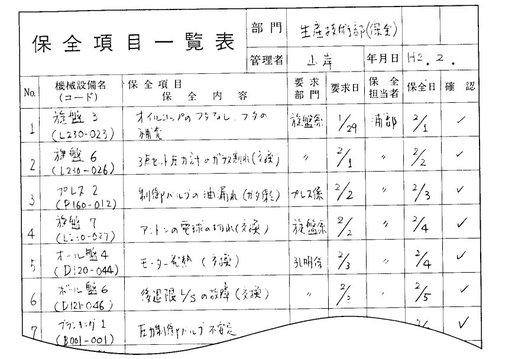 保全項目一覧表
部門 生産技術部(保全)
管理者 山岸 年月日 H2.2.
No. 機械設備名(コード) 保全項目 保全内容 要求部門 要求日 保全担当者 保全日 確認
1 旋盤3 (L230-023) オイルコップのフタなし、フタの補充 旋盤係 1/29 浦部 2/1 ✓
2 旋盤6 (L230-026) 3点セット圧力計のガラス割れ(交換) 〃 2/1 〃 2/2 ✓
3 プレス2 (P160-012) 制御バルブの油漏れ(交換) プレス係 2/2 〃 2/3 ✓
4 旋盤7 アンドンの電球の切れ(交換) 旋盤係 2/2 〃 2/4 ✓
5 ボール盤4 (D120-044) モーター発熱(交換) 2/3 〃 2/4 ✓
6 ボール盤6 (D121-046) 後退限L/Sの故障(交換) 〃 〃 2/5 ✓
7 ブランキング1 (B001-001) 圧力制御バルブ不安定 ✓